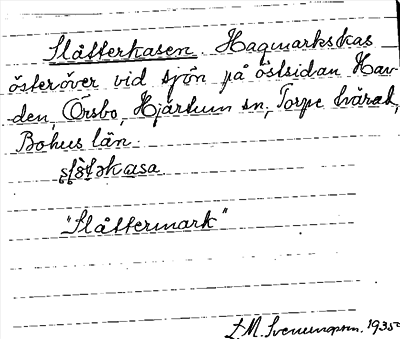 Slåtterkasen. Hagmarkskas
österöver vid sjön på östsidan Hav-
den, Örsbo, Hjärtum sn, Torpe härad,
Bohus län.
"Slåttermark"
L. M. Svenungsson. 1935